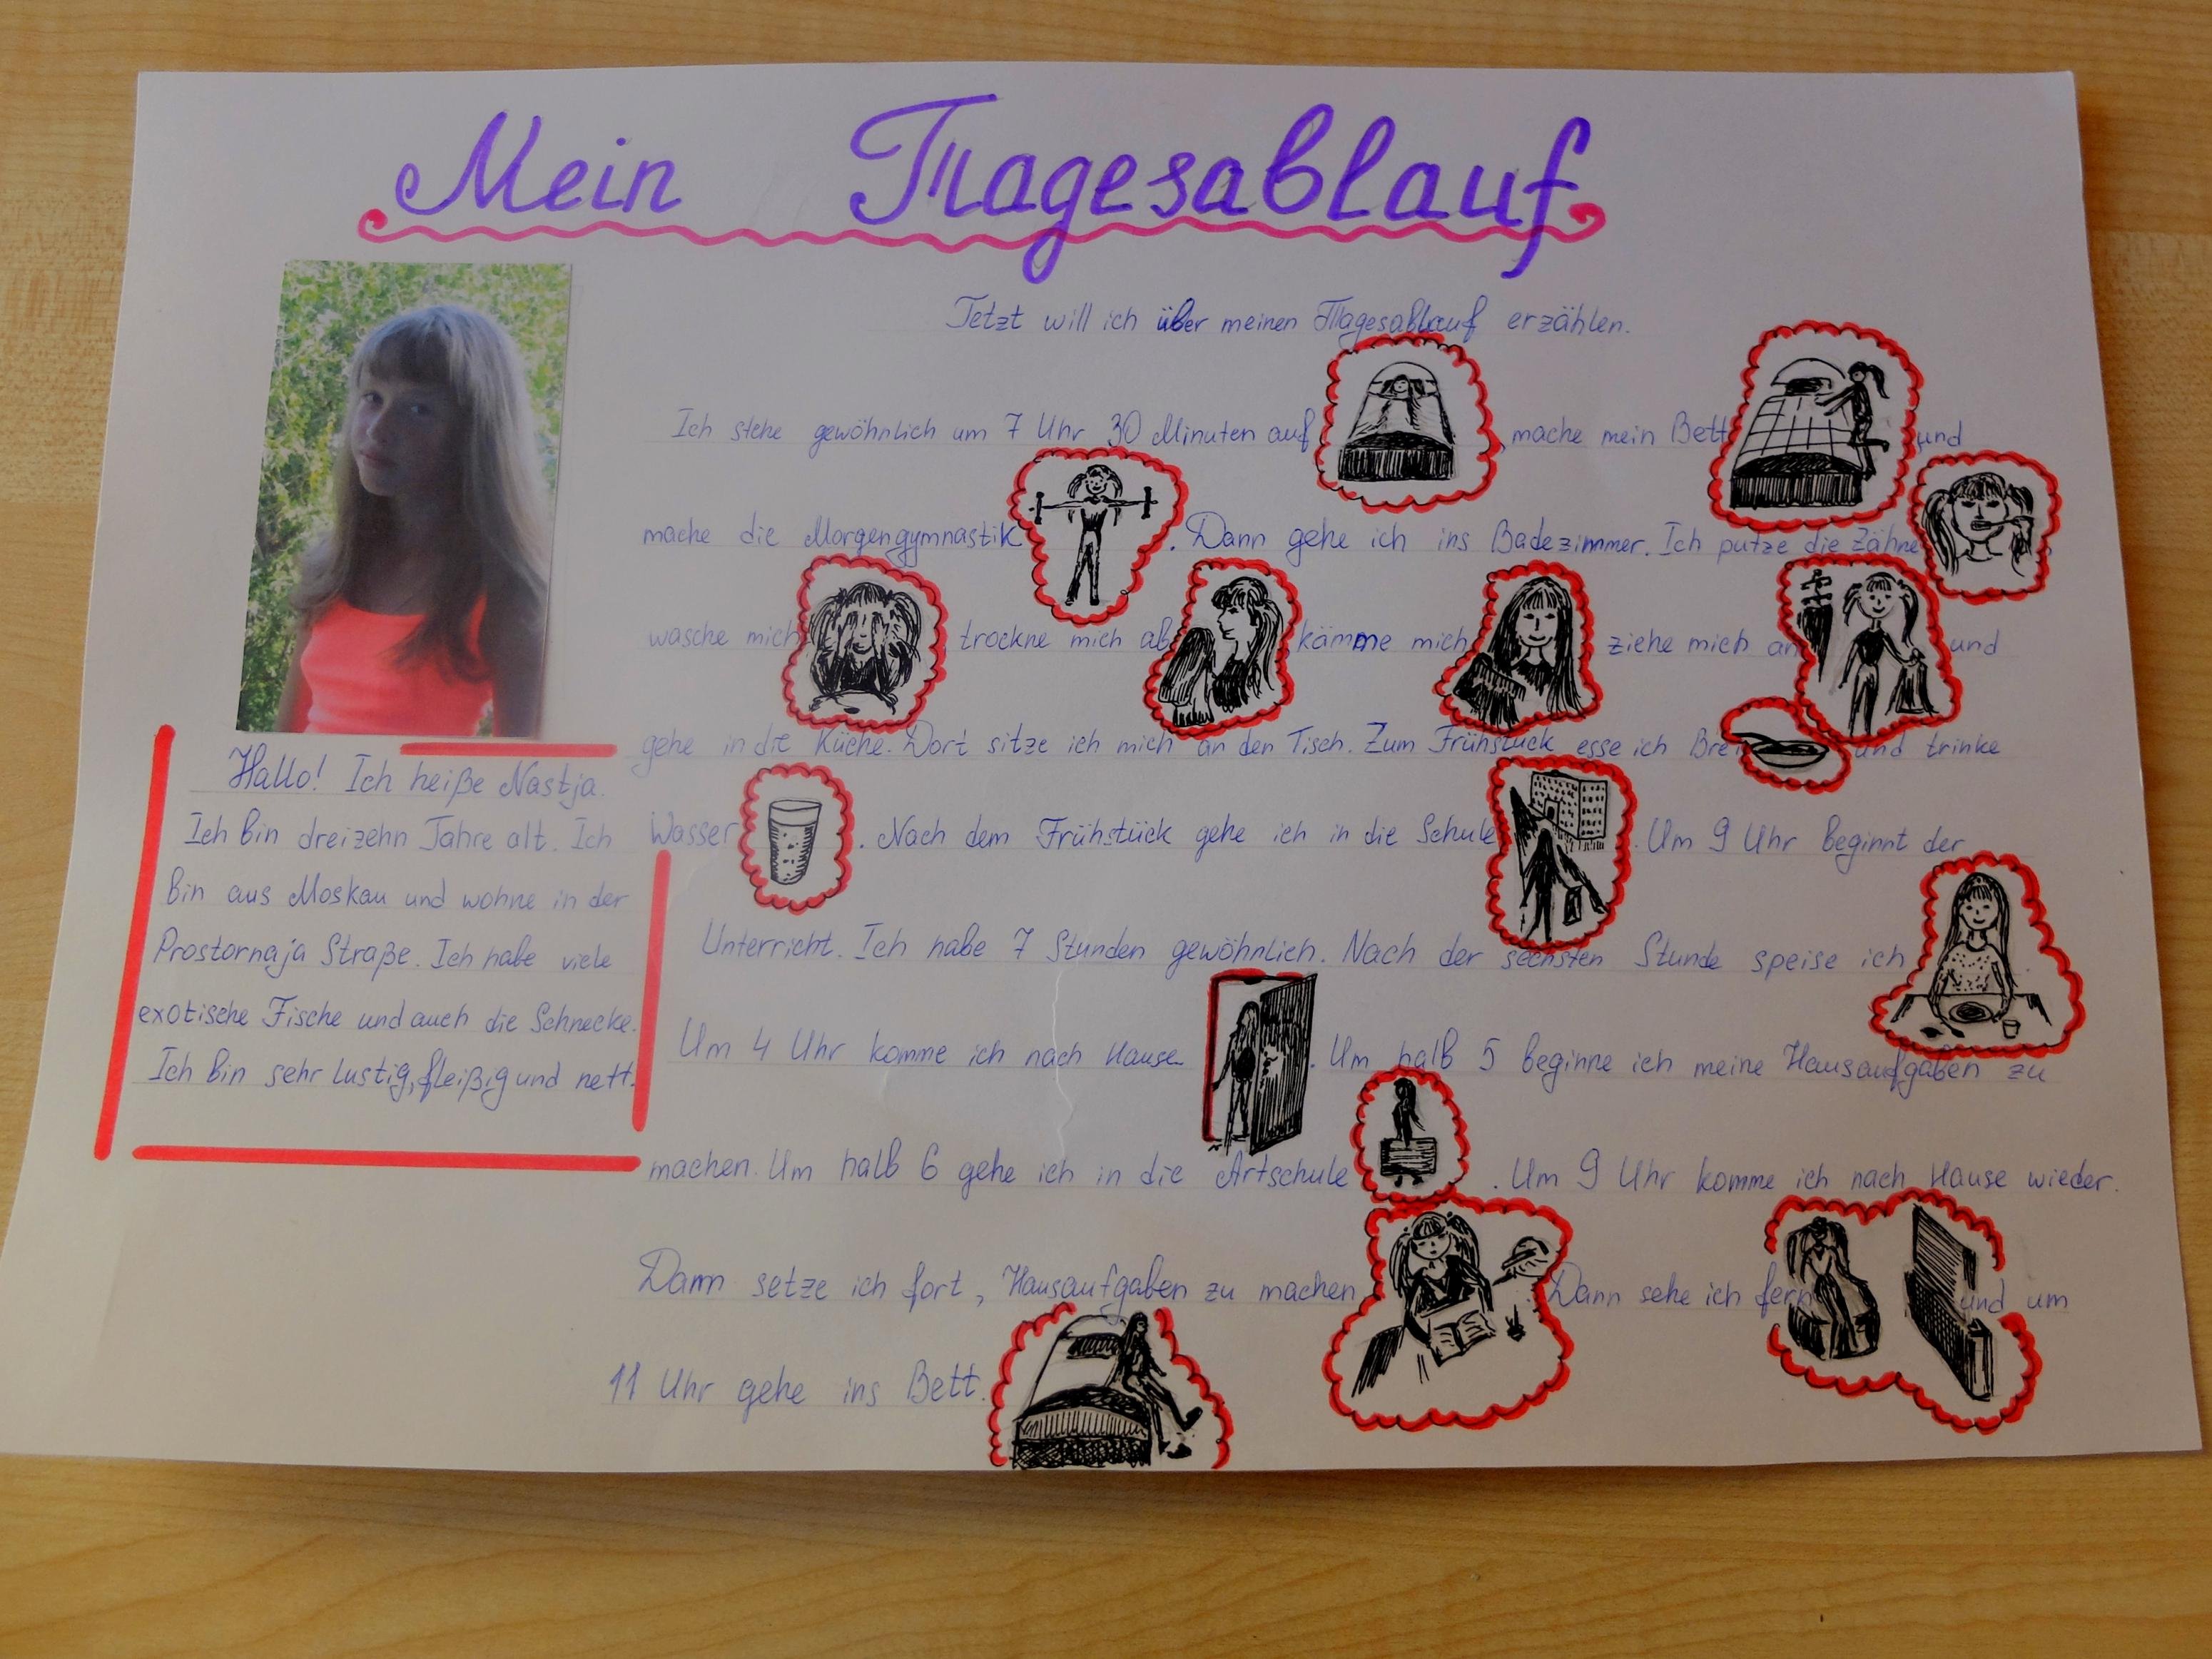 Mein Tagesablauf
Jetzt will ich über meinen Tagesablauf erzählen.
Ich stehe gewöhnlich um 7 Uhr 30 Minuten auf, mache mein Bett und
mache die Morgengymnastik. Dann gehe ich ins Badezimmer. Ich putze die Zähne,
wasche mich, trockne mich ab, kämme mich, ziehe mich an und
gehe in die Küche. Dort sitze ich mich an den Tisch. Zum Frühstück esse ich Brei und trinke
Wasser. Nach dem Frühstück gehe ich in die Schule. Um 9 Uhr beginnt der
Unterricht. Ich habe 7 Stunden gewöhnlich. Nach der sechsten Stunde speise ich.
Um 4 Uhr komme ich nach Hause. Um halb 5 beginne ich meine Hausaufgaben zu
machen. Um halb 6 gehe ich in die Artschule. Um 9 Uhr komme ich nach Hause wieder.
Dann setze ich fort, Hausaufgaben zu machen. Dann sehe ich fern und um
11 Uhr gehe ins Bett.
Hallo! Ich heiße Nastja.
Ich bin dreizehn Jahre alt. Ich
bin aus Moskau und wohne in der
Prostornaja Straße. Ich habe viele
exotische Fische und auch die Schnecke.
Ich bin sehr lustig, fleißig und nett.